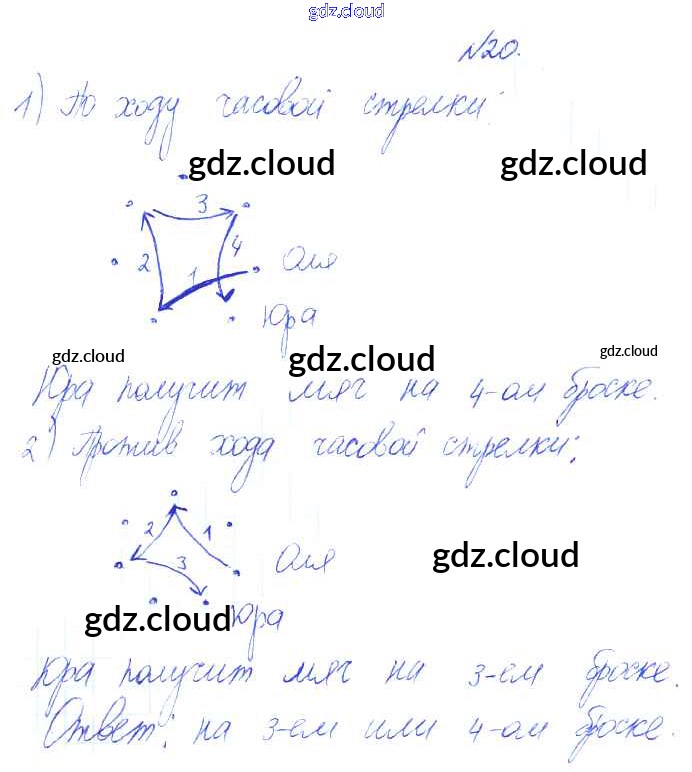 gdz.cloud
№20.
1) По ходу часовой стрелки:
gdz.cloud gdz.cloud
3
2 4
1 Оля
Юра
gdz.cloud gdz.cloud gdz.cloud
Юра получит мяч на 4-ом броске.
2) Против хода часовой стрелки:
2 1
3 Оля gdz.cloud
gdz.cloud Юра
Юра получит мяч на 3-ем броске.
Ответ: на 3-ем или 4-ом броске.